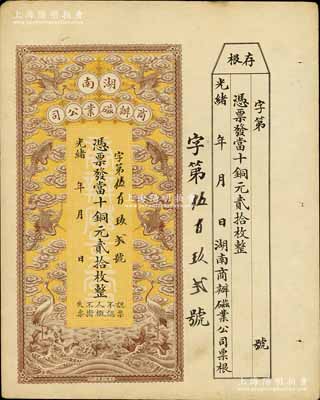 上海陽明拍賣
湖南
商辦磁業公司
字第伍百玖貳號
憑票發當十銅元貳拾枚整
光緒 年 月 日
認票不認人
失票概不掛
字第伍百玖貳號
存根
字第 號
憑票發當十銅元貳拾枚整
光緒 年 月 日湖南商辦磁業公司票根